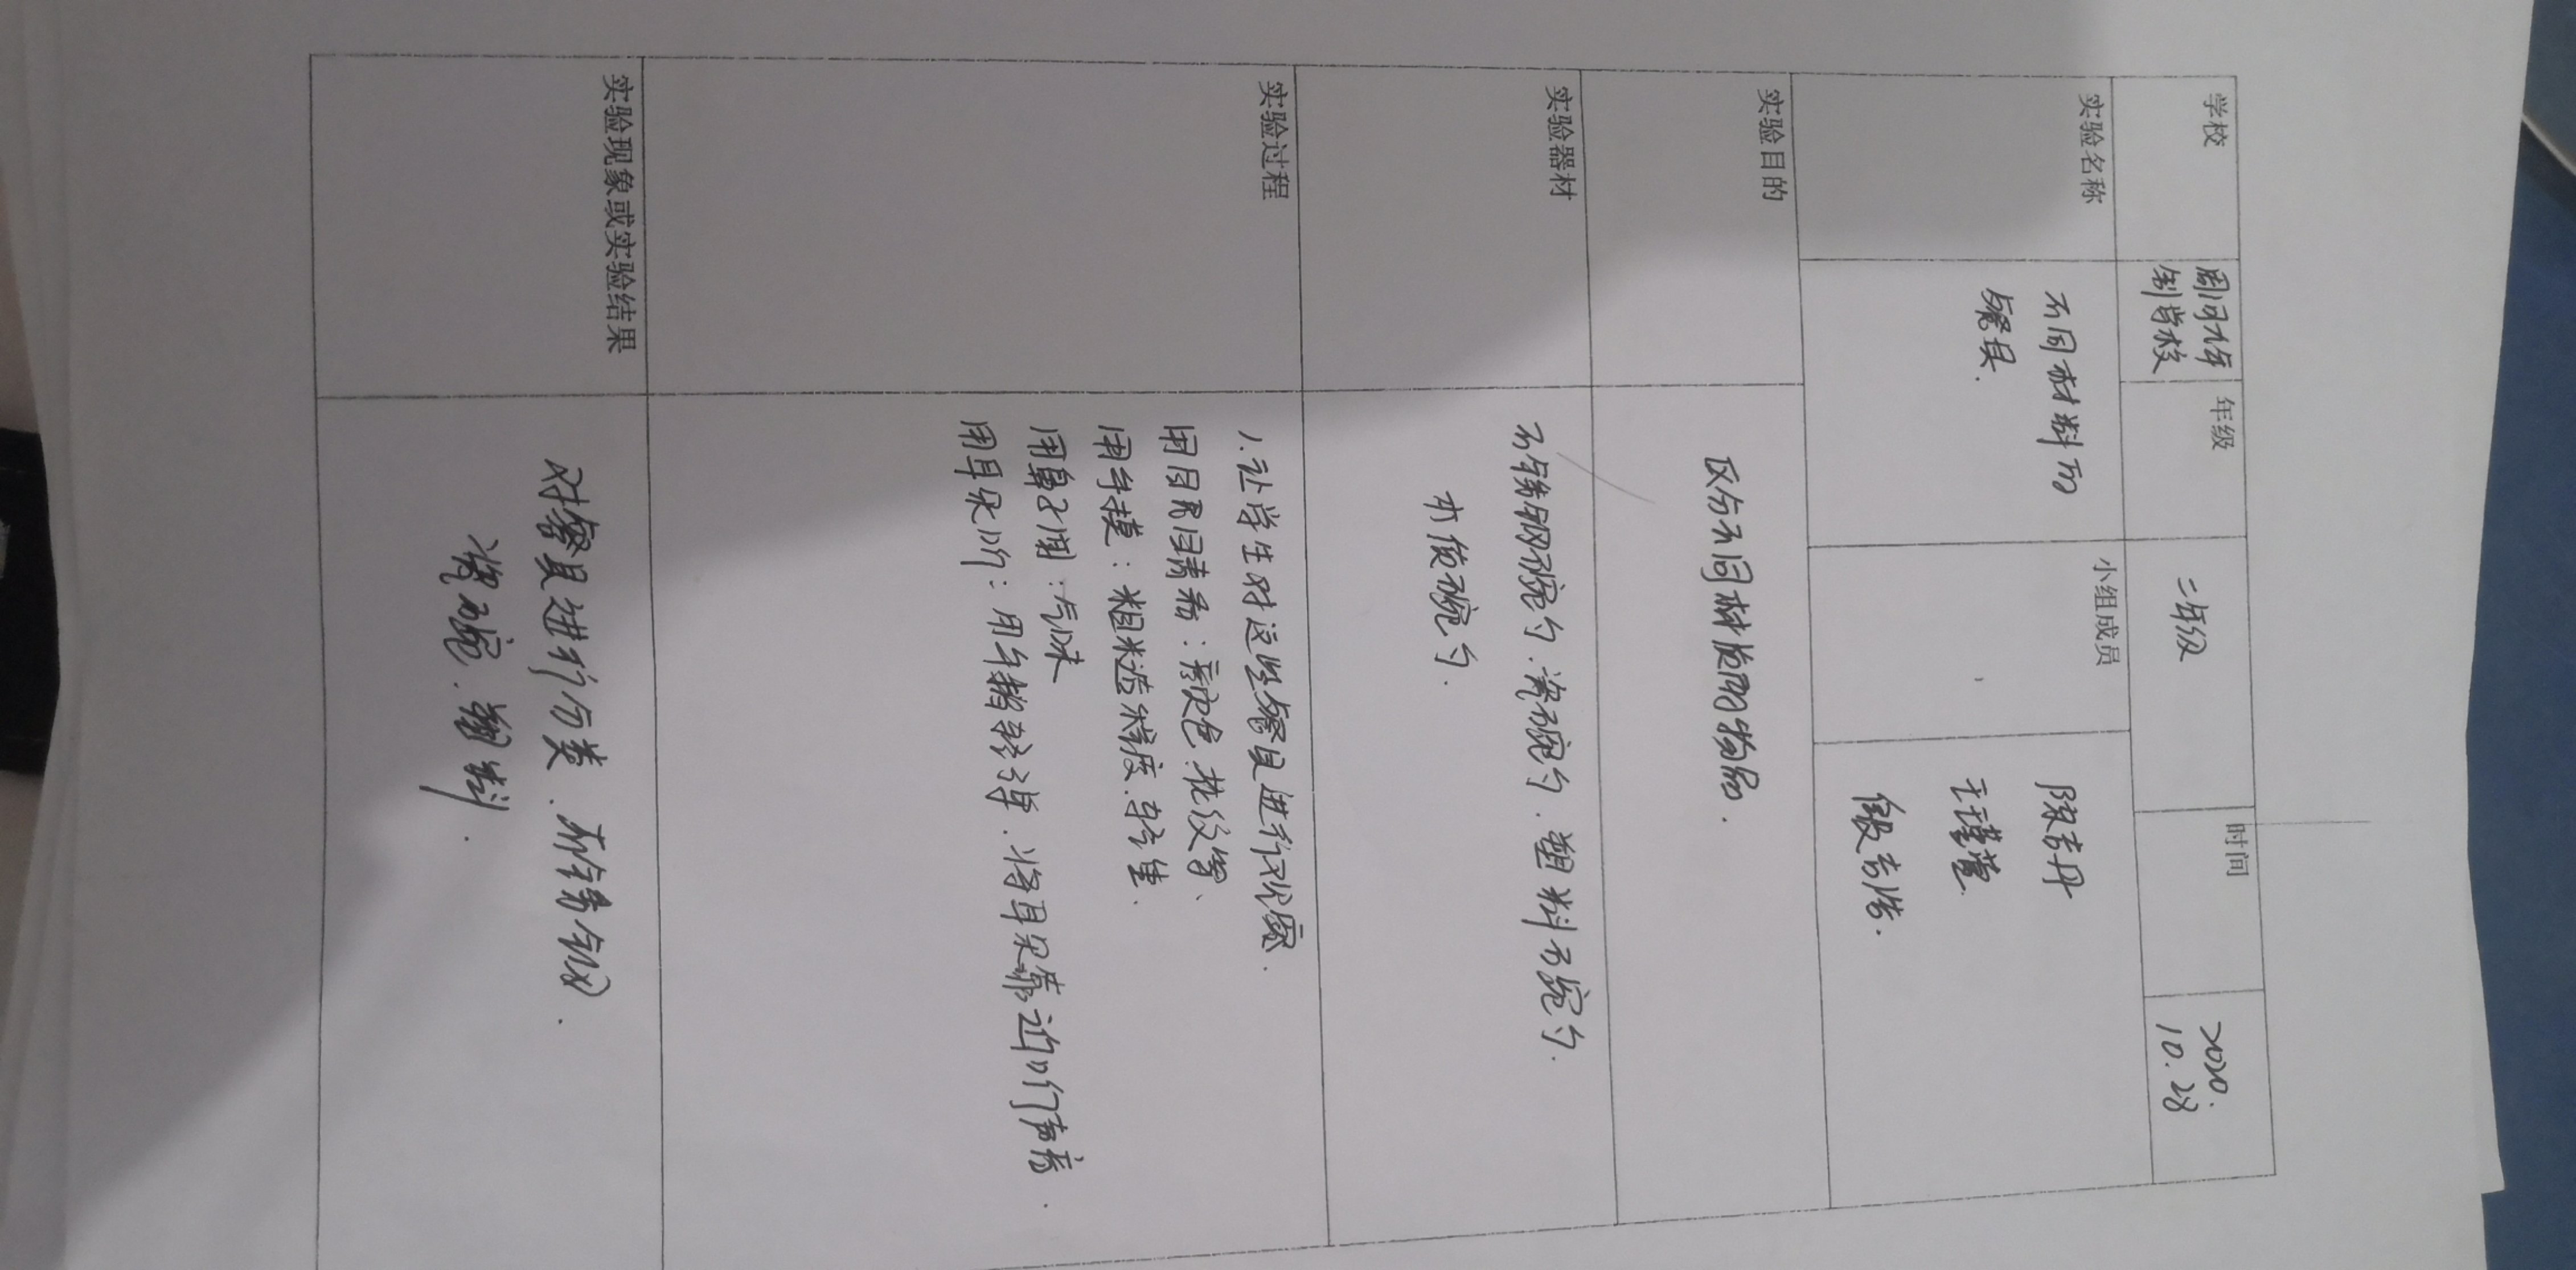 学校
周问九年
制学校
年级
二年级
时间
2020.
10.28
实验名称
不同材料的
餐具.
小组成员
陈吉丹
王瑾萱
殷吉浩.
实验目的
区分不同材质的物品.
实验器材
不锈钢碗勺.瓷碗勺.塑料碗勺.
木质碗勺.
实验过程
1.让学生对这些餐具进行观察.
用眼睛看:颜色.花纹等、
用手摸:粗糙程度.轻重.
用鼻子闻:气味
用耳朵听:用手指轻弹.将耳朵靠近听声音.
实验现象或实验结果
对餐具进行分类.不锈钢.
瓷碗.塑料.